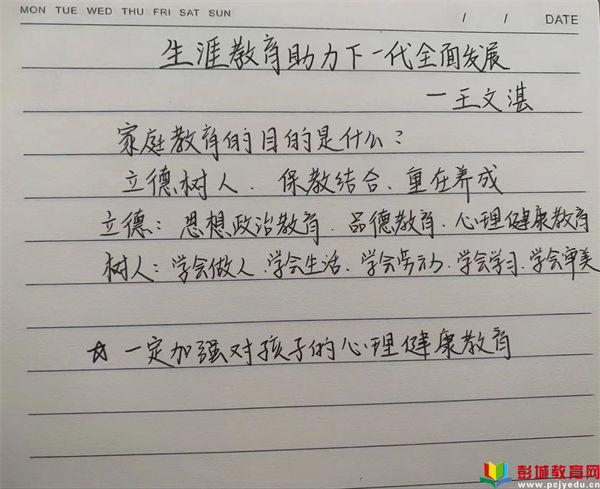 MON TUE WED THU FRI SAT SUN / / DATE
生涯教育助力下一代全面发展
—王文湛
家庭教育的目的是什么?
立德树人、保教结合、重在养成
立德:思想政治教育、品德教育、心理健康教育
树人:学会做人、学会生活、学会劳动、学会学习、学会审美
☆ 一定加强对孩子的心理健康教育
彭城教育网
www.pcjyedu.cn